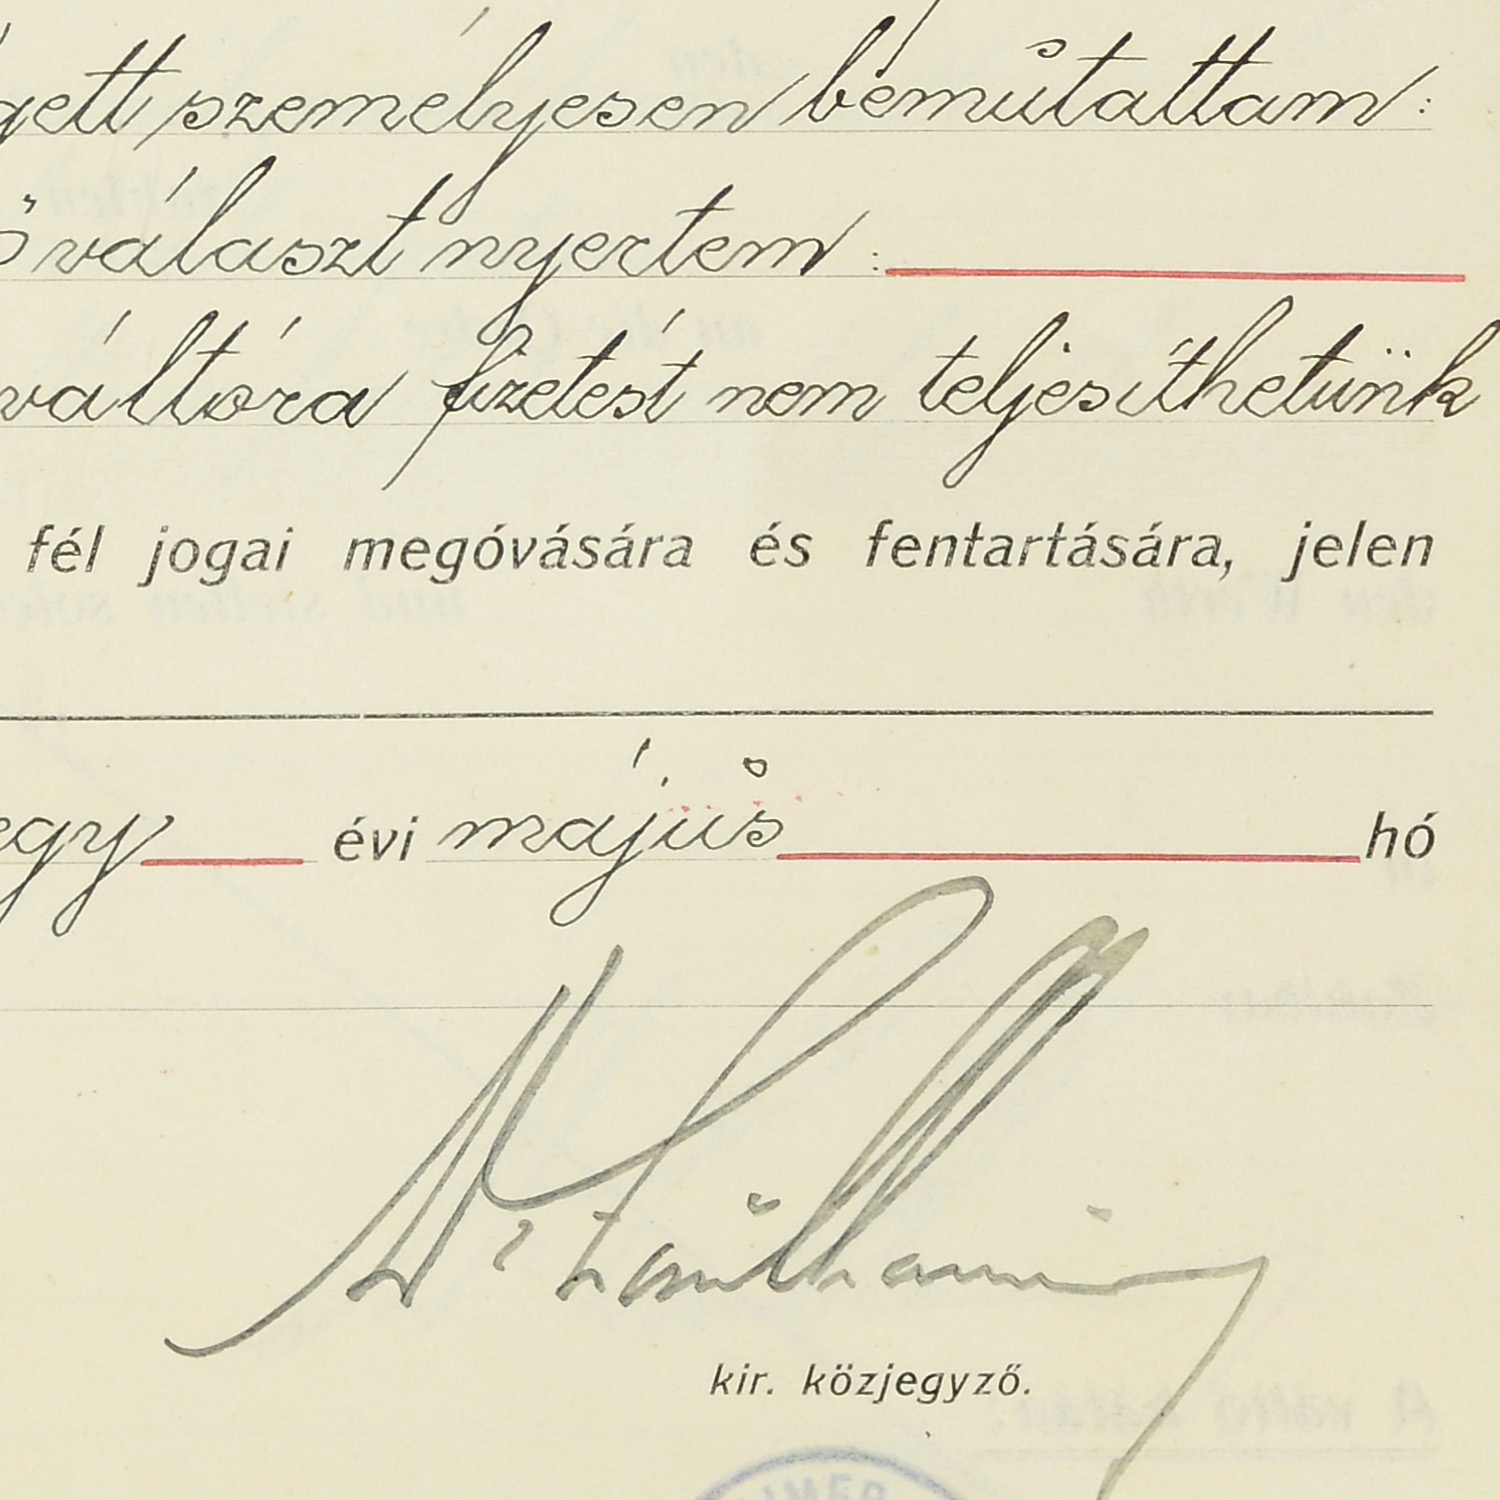 gett személyesen bemutattam:
választ nyertem:
váltóra fizetést nem teljesíthetünk
fél jogai megóvására és fentartására, jelen
egy évi május hó
kir. közjegyző.